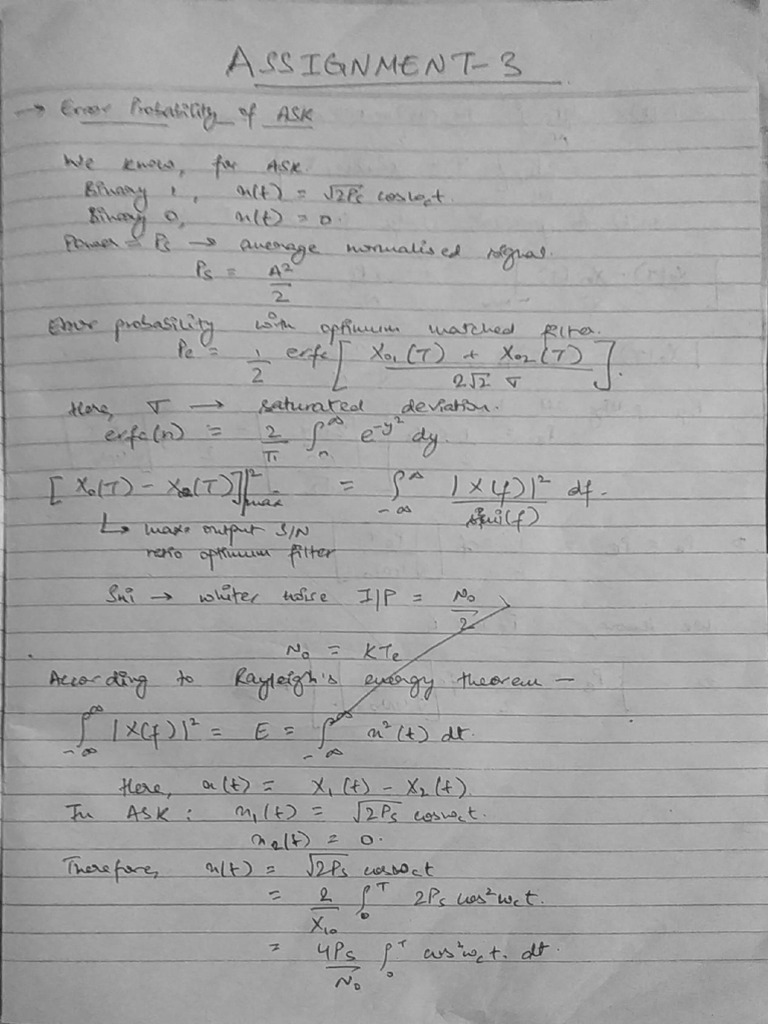 ASSIGNMENT-3
→ Error Probability of ASK
We know, for ASK
Binary 1, x(t) = √2Ps cosω_ct.
Binary 0, x(t) = 0.
Power = Ps → average normalised signal.
Ps = A²/2
Error probability with optimum matched filter.
Pe = 1/2 erfc [ (X₀₁(T) + X₀₂(T)) / (2√2 σ) ].
Here, σ → saturated deviation.
erfc(n) = 2/π ∫_n^∞ e^(-y²) dy.
[X₀(T) - X₀₂(T)]²|max = ∫_-∞^∞ |X(f)|²/Sni(f) df.
↳ max. output S/N
ratio optimum filter
Sni → whiter noise I/P = N₀/2
N₀ = KTe
According to Rayleigh's energy theorem —
∫_-∞^∞ |X(f)|² = E = ∫_-∞^∞ x²(t) dt.
Here, x(t) = X₁(t) - X₂(t).
In ASK : x₁(t) = √2Ps cosω_ct.
x₂(t) = 0.
Therefore, x(t) = √2Ps cosω_ct
= 2/X₁₀ ∫_0^T 2Ps cos²ω_ct.
= 4Ps/N₀ ∫_0^T cos²ω_ct. dt.